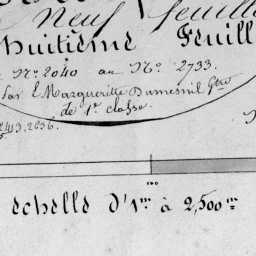 Neuf feuille
huitième Feuill
N° 2040 au N° 2733.
Par E. Margueritte Dumesnil Gtre
de 1re classe.
2413. 2656.
100
echelle d'1m à 2,500m